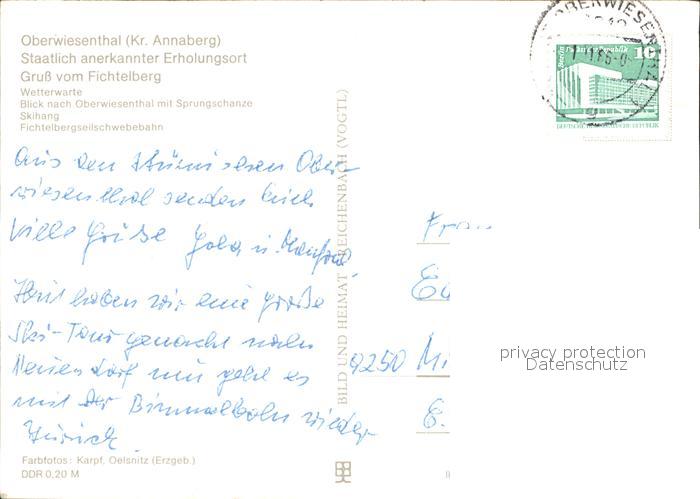 Oberwiesenthal (Kr. Annaberg)
Staatlich anerkannter Erholungsort
Gruß vom Fichtelberg
Wetterwarte
Blick nach Oberwiesenthal mit Sprungschanze
Skihang
Fichtelbergseilschwebebahn
Aus dem stürmischen Ober-
wiesenthal senden Euch
viele Grüße Jola u. Manfred
Heut haben wir eine große
Ski-Tour gemacht nach
Neuendorf nun geht es
mit der Bimmelbahn wieder
zurück.
Farbfotos: Karpf, Oelsnitz (Erzgeb.)
DDR 0,20 M
BILD UND HEIMAT REICHENBACH (VOGTL)
OBERWIESENTHAL
10
DEUTSCHE DEMOKRATISCHE REPUBLIK
Frau
9250 Mi
privacy protection
Datenschutz